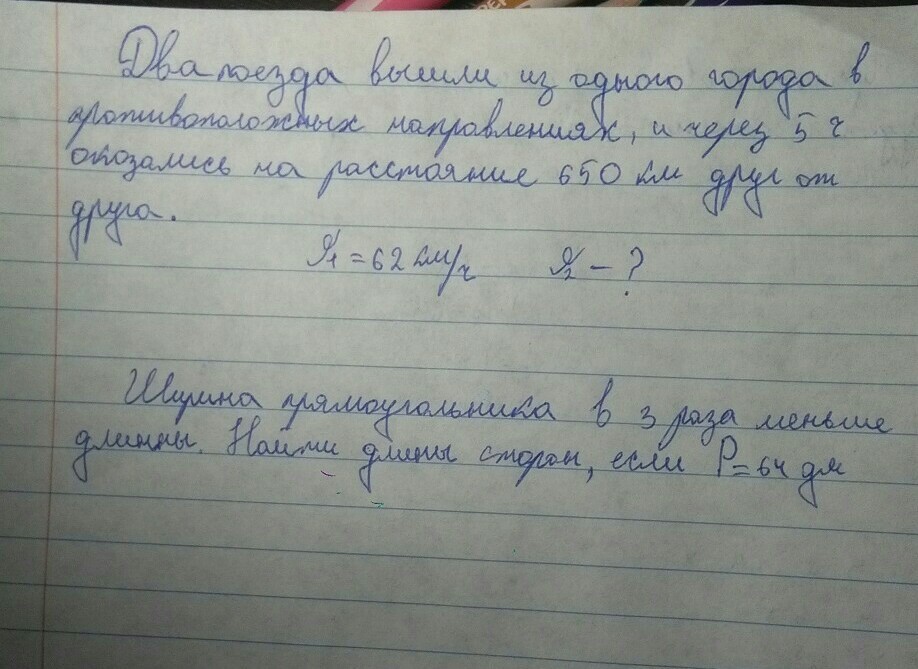 Два поезда вышли из одного города в
противоположных направлениях, и через 5 ч
оказались на расстояние 650 км друг от
друга.
V₁ = 62 км/ч V₂ - ?
Ширина прямоугольника в 3 раза меньше
длинны. Найти длины сторон, если P = 64 дм